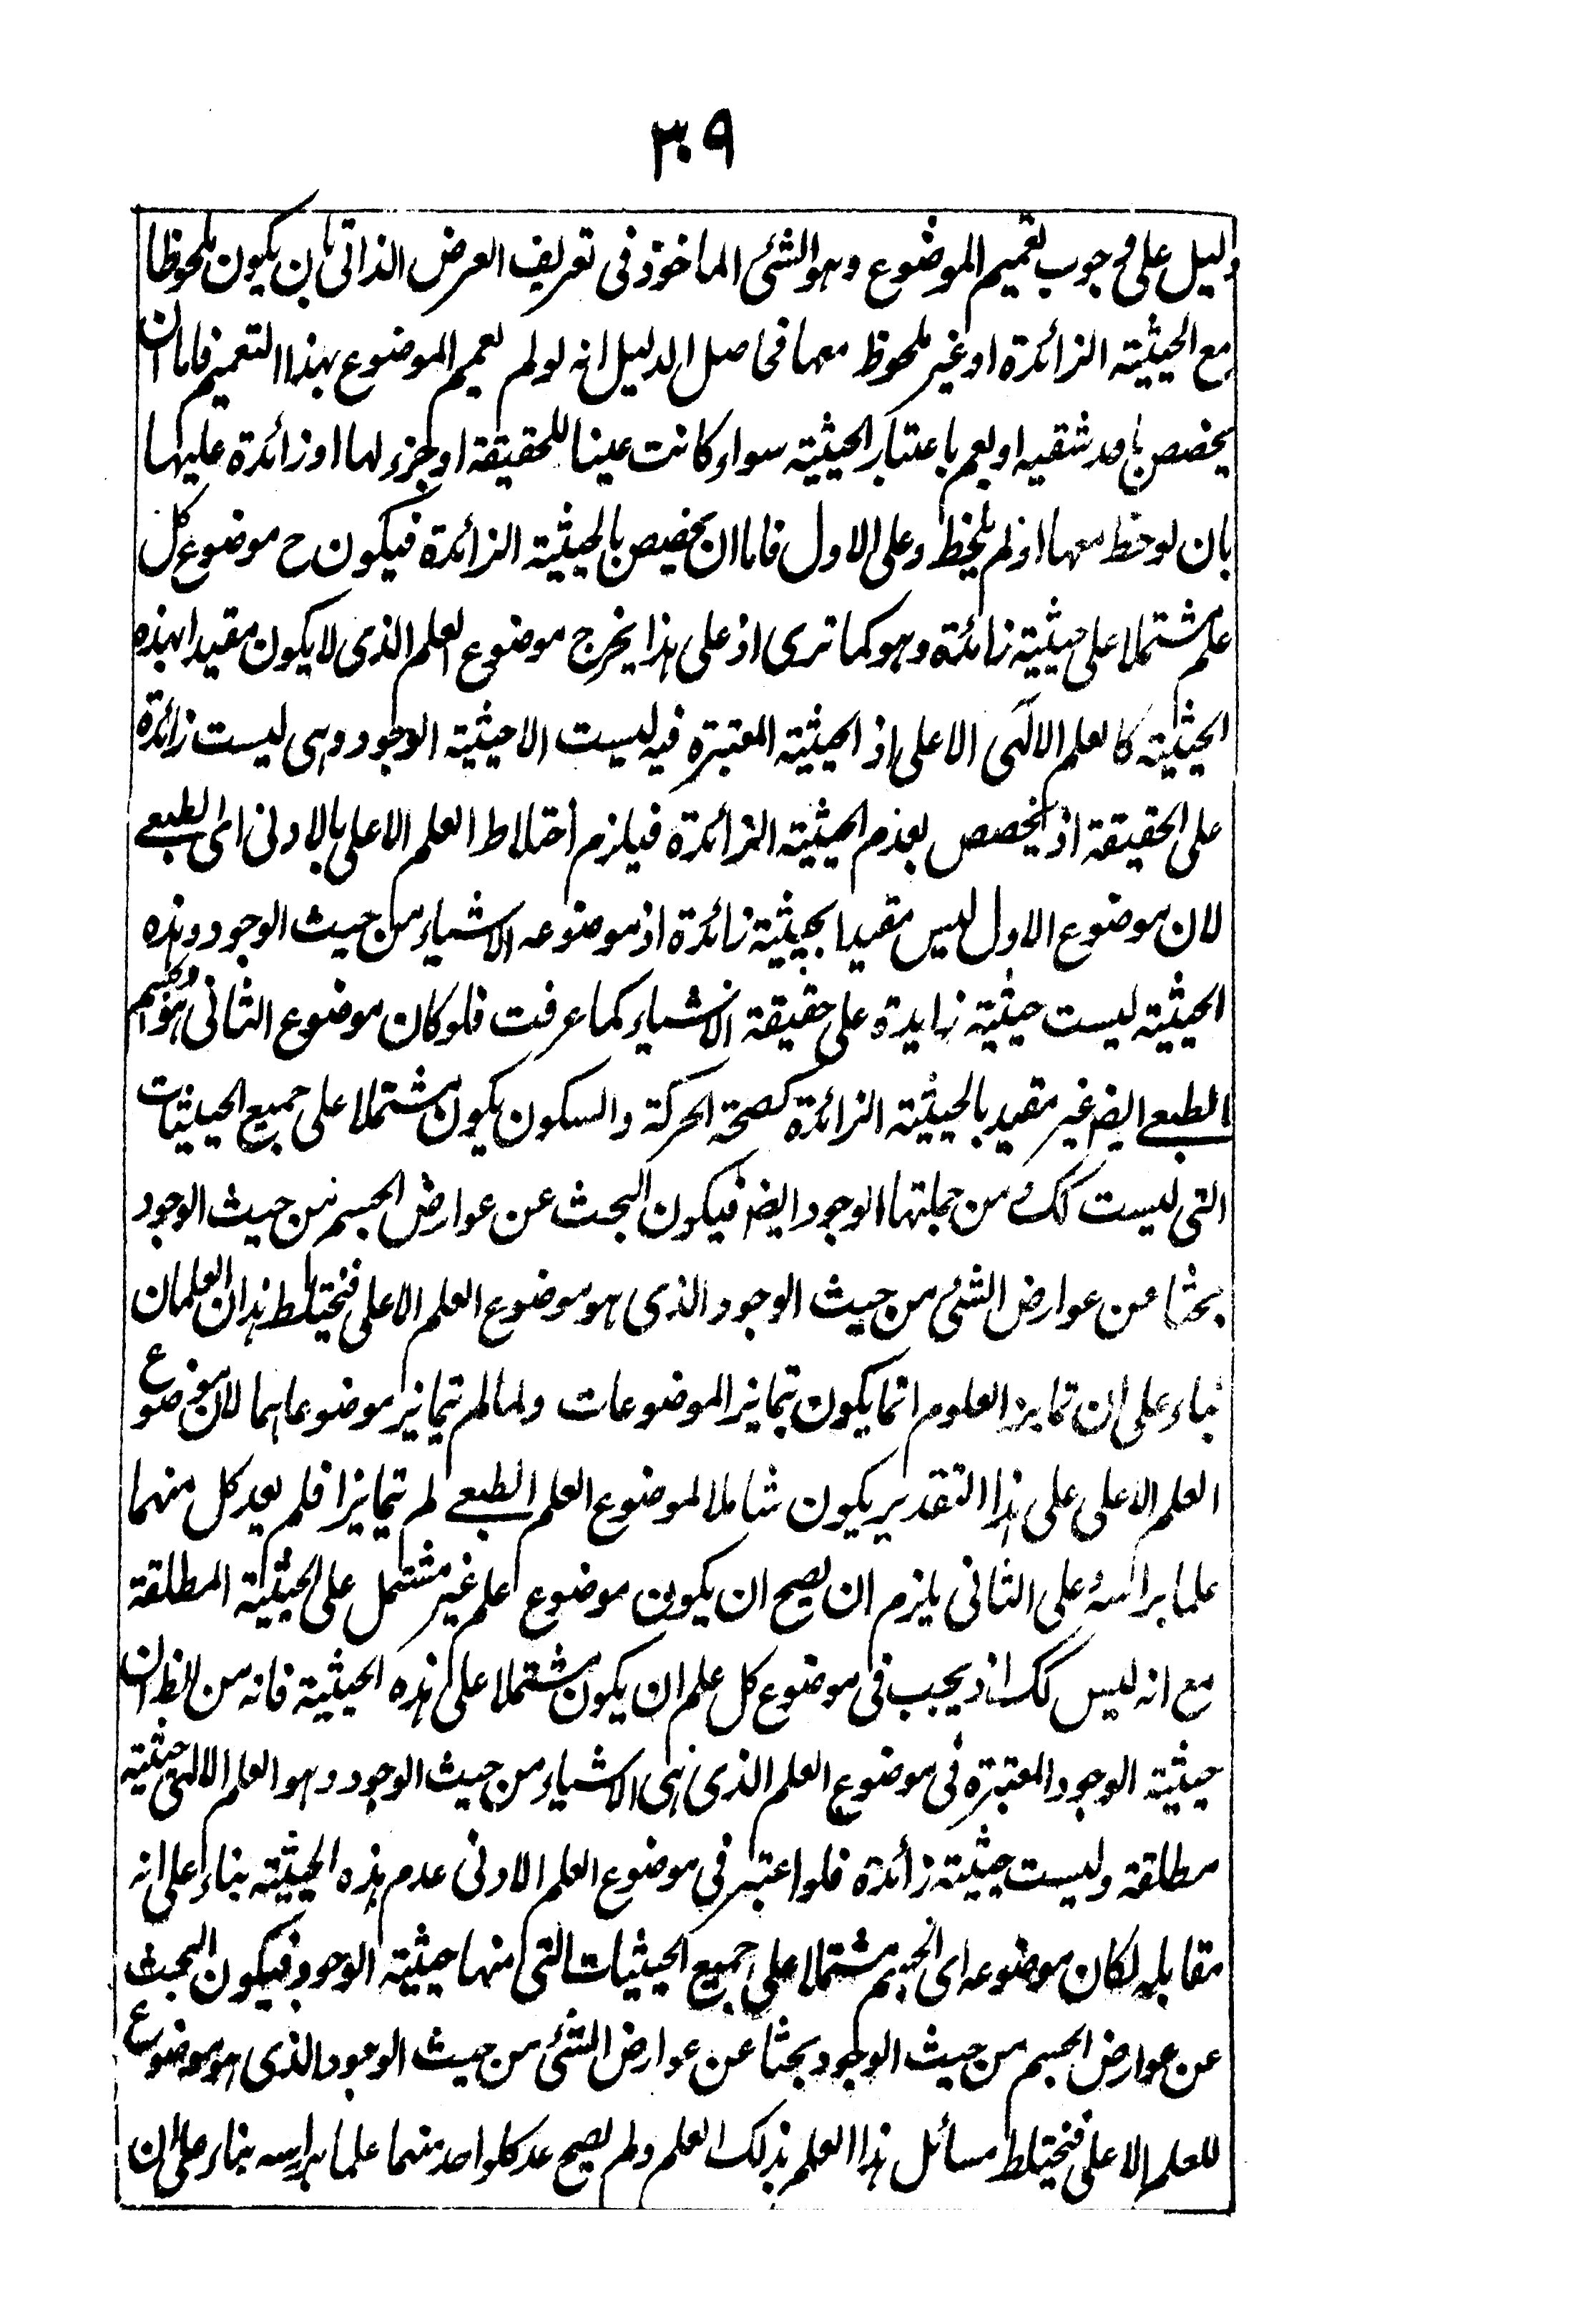 ٣٠٩
دليل على وجوب تعميم الموضوع وهو الشئ الماخوذ فى تعريف العرض الذاتى بان يكون ملحوظا
مع الحيثية الزائدة او غير ملحوظ معها فحاصل الدليل انه لو لم يعمم الموضوع بهذا التعميم فاما ان
يخصص باحد شقيه او يعم باعتبار الحيثية سواء كانت عينا للحقيقة او جزء لها او زائدة عليها
بان لوحظ معها او لم يلحظ وعلى الاول فاما ان يخصص بالحيثية الزائدة فيكون ح موضوع كل
علم مشتملا على حيثية زائدة وهو كما ترى اذ على هذا يخرج موضوع العلم الذى لا يكون مقيدا بهذه
الحيثية كالعلم الالهى الاعلى اذ الحيثية المعتبرة فيه ليست الا حيثية الوجود وهى ليست زائدة
على الحقيقة اذ يخصص بعدم الحيثية الزائدة فيلزم اختلاط العلم الاعلى بالادنى اى الطبعى
لان موضوع الاول ليس مقيدا بحيثية زائدة اذ موضوعه الاشياء من حيث الوجود وهذه
الحيثية ليست حيثية زايدة على حقيقة الاشياء كما عرفت فلو كان موضوع الثانى وهو الجسم
الطبعى ايض غير مقيد بالحيثية الزائدة كصحة الحركة والسكون يكون مشتملا على جميع الحيثيات
التى ليست كك من جملتها الوجود ايض فيكون البحث عن عوارض الجسم من حيث الوجود
بحثا عن عوارض الشئ من حيث الوجود الذى هو موضوع العلم الاعلى فيختلط هذان العلمان
بناء على ان تمايز العلوم انما يكون بتمايز الموضوعات ولما لم يتمايز موضوعاهما لان موضوع
العلم الاعلى على هذا التقدير يكون شاملا لموضوع العلم الطبعى لم يتمايزا فلم يعد كل منهما
علما براسه وعلى الثانى يلزم ان يصح ان يكون موضوع علم غير مشتمل على الحيثية المطلقة
مع انه ليس كك اذ يجب فى موضوع كل علم ان يكون مشتملا على هذه الحيثية فانه من الظ ان
حيثية الوجود المعتبرة فى موضوع العلم الذى هى الاشياء من حيث الوجود وهو العلم الالهى حيثية
مطلقة وليست حيثية زائدة فلو اعتبر فى موضوع العلم الادنى عدم هذه الحيثية بناء على انه
مقابله لكان موضوعه اى الجسم مشتملا على جميع الحيثيات التى منها حيثية الوجود فيكون البحث
عن عوارض الجسم من حيث الوجود بحثا عن عوارض الشئ من حيث الوجود الذى هو موضوع
للعلم الاعلى فيختلط مسائل هذا العلم بذلك العلم ولم يصح عد كلواحد منهما علما براسه بناء على ان